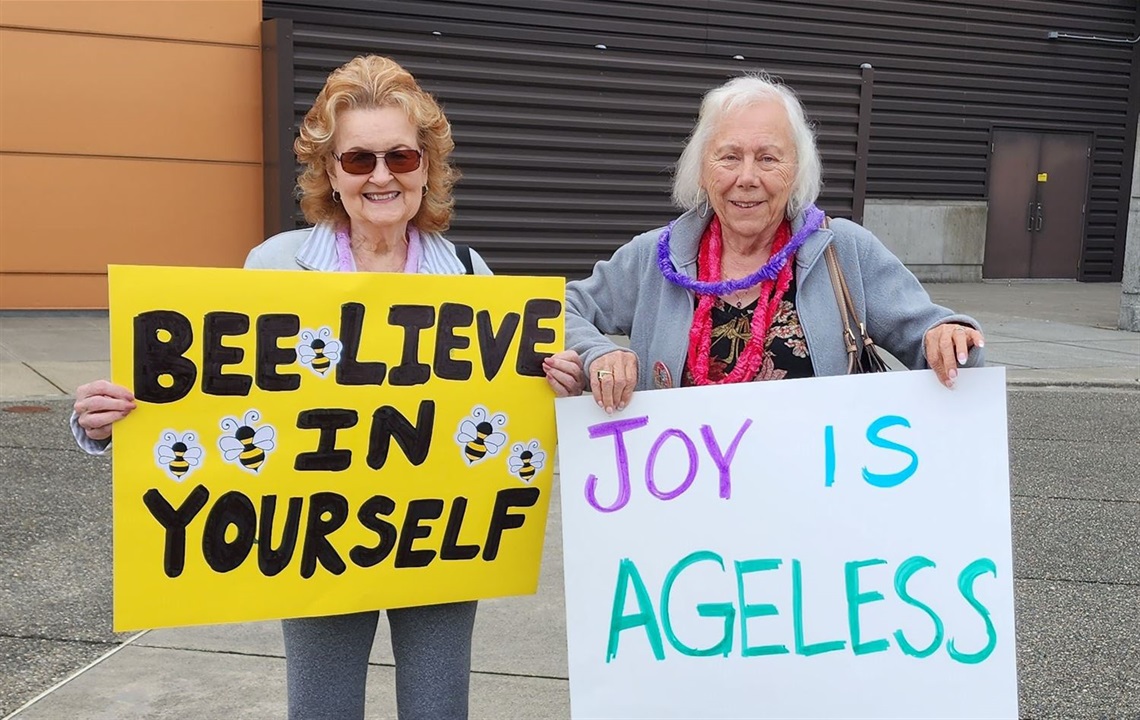 BEE LIEVE
IN
YOURSELF
JOY IS
AGELESS